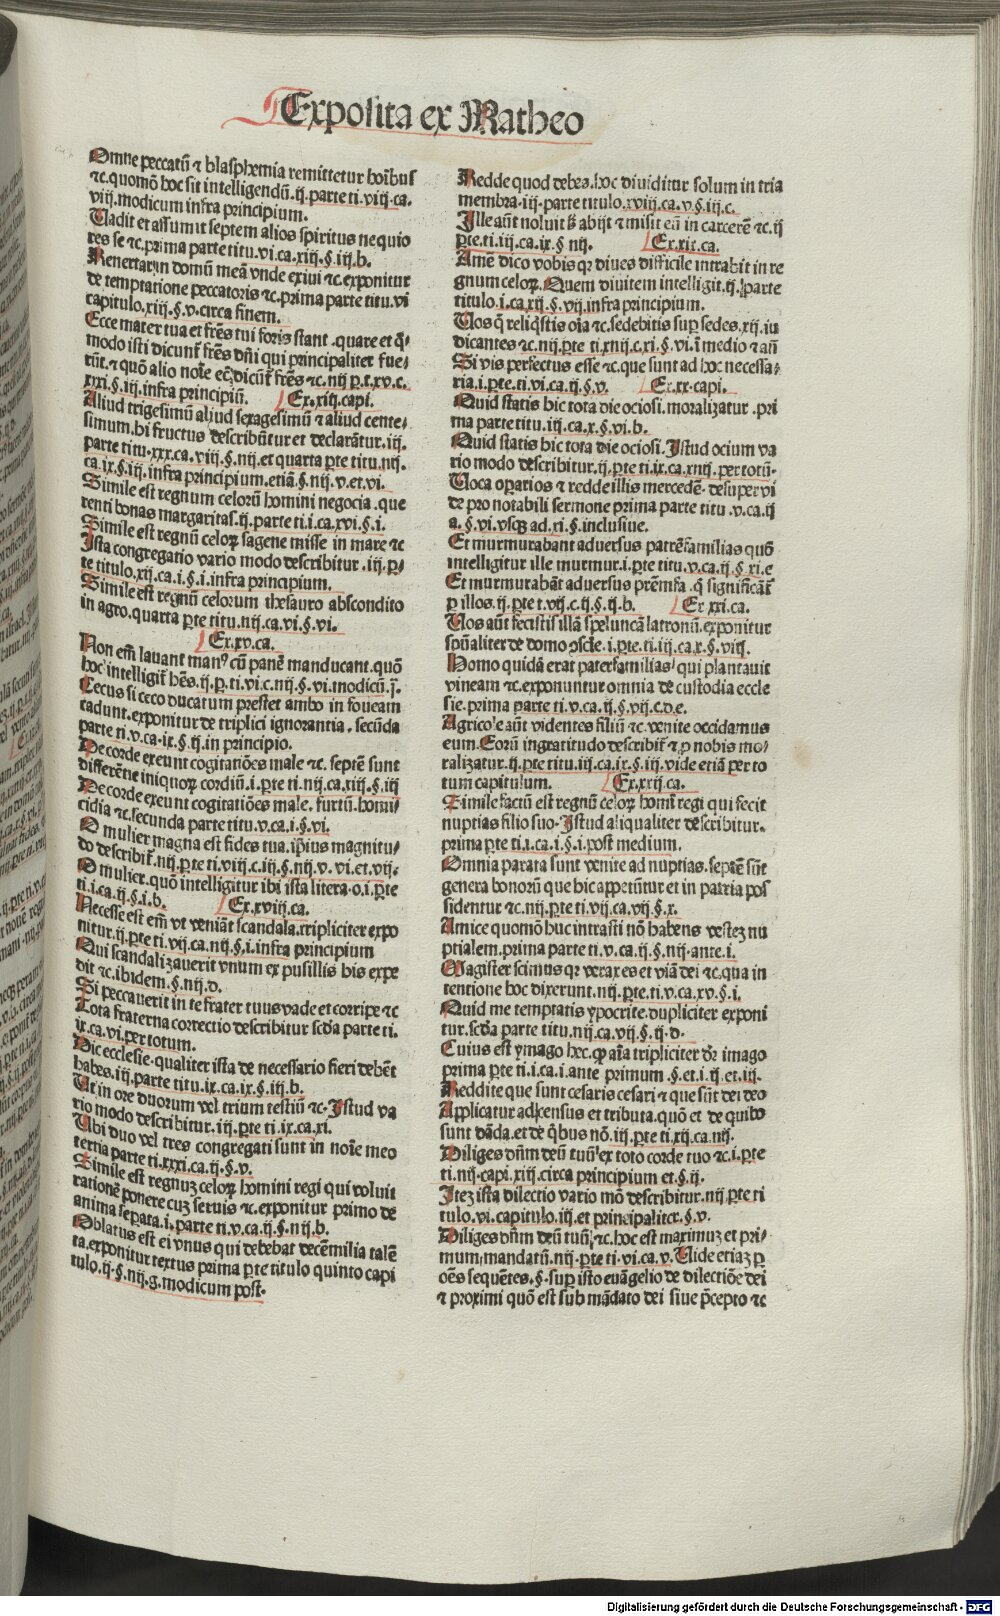 Expolita ex Matheo
Omne peccatū ⁊ blasphemia remittetur hoībus
⁊c. quomō hoc sit intelligendū. ij. parte ti. viij. ca.
viij. modicum infra principium.
Uadit et assumit septem alios spiritus nequio
res se ⁊c. prima parte titu. vi. ca. xiij. §. iij. b.
Reuertar in domū meā vnde exiui ⁊c. exponitur
de temptatione peccatoris ⁊c. prima parte titu. vi
capitulo. xiij. §. v. circa finem.
Ecce mater tua et frēs tui foris stant. quare et q̄-
modo isti dicunt̄ frēs dn̄i qui principaliter fue-
rūt. et quō alio noīe eē dicūt̄ frēs ⁊c. iiij p. t. xv. c.
xxxi. §. iij. infra principiū. Ex. xiij. capi.
Aliud trigesimū aliud sexagesimū ⁊ aliud cente-
simum. hi fructus describūtur et declarātur. iij.
parte titu. xxx. ca. viij. §. iiij. et quarta p̄te titu. iiij.
ca. ix. §. iij. infra principium. etiā. §. iiij. v. et. vi.
Simile est regnum celorū homini negocia. que
renti bonas margaritas. ij. parte ti. i. ca. xvi. §. i.
Simile est regnū celoꝝ sagene misse in mare ⁊c
Ista congregatio vario modo describitur. iij. p-
te titulo. xij. ca. i. §. i. infra principium.
Simile est regnū celorum thesauro abscondito
in agro. quarta p̄te titu. iiij. ca. vi. §. vi.
Ex. xv. ca.
Non em̄ lauant manꝰ cū panē manducant. quō
hoc intelligit̄ hēs. ij. p. ti. vi. c. iiij. §. vi. modicū. j̄.
Cecus si ceco ducatum prestet ambo in foueam
cadunt. exponitur de triplici ignorantia. secūda
parte ti. v. ca. ix. §. ij. in principio.
De corde exeunt cogitatiōes male ⁊c. septē sunt
differētie iniquoꝝ cordiū. i. p̄te ti. iiij. ca. xiij. §. iij
De corde exeunt cogitatiōes male. furtū. homi-
cidia ⁊c. secunda parte titu. v. ca. i. §. vi.
O mulier magna est fides tua. ip̄ius magnitu-
do describit̄. iiij. p̄te ti. viij. c. iij. §. iiij. v. vi. et. vij.
O mulier. quō intelligitur ibi ista litera. o. i. p̄te
ti. i. ca. ij. §. i. b. Ex. xviij. ca.
Necesse est em̄ vt veniāt scandala. tripliciter expo
nitur. ij. p̄te ti. vij. ca. iiij. §. i. infra principium
Qui scandalizauerit vnum ex pusillis his expe
dit ⁊c. ibidem. §. iiij. d.
Si peccauerit in te frater tuus vade et corripe ⁊c
Tota fraterna correctio describitur scd̄a parte ti.
ix. ca. vi. per totum.
Dic ecclesie. qualiter ista de necessario fieri debēt
habes. iij. parte titu. ix. ca. ix. §. iij. b.
Ut in ore duorum vel trium testiū ⁊c. Istud va
rio modo describitur. iij. p̄te ti. ix. ca. xi.
Ubi duo vel tres congregati sunt in noīe meo
tertia parte ti. xxxi. ca. ij. §. v.
Simile est regnuꝫ celoꝝ homini regi qui voluit
rationē ponere cuꝫ seruis ⁊c. exponitur primo de
anima sep̄ata. i. parte ti. v. ca. ij. §. iiij. b.
Oblatus est ei vnus qui debebat decēmilia talē
ta. exponitur textus prima p̄te titulo quinto capi
tulo. ij. §. iiij. g. modicum post.
Redde quod debes. hoc diuiditur solum in tria
membra. iij. parte titulo. xviij. ca. v. §. iij. c.
Ille aūt noluit s̄ abijt ⁊ misit eū in carcerē ⁊c. ij
p̄te. ti. iij. ca. ix. §. iiij. Ex. xix. ca.
Amē dico vobis qꝛ diues difficile intrabit in re
gnum celoꝝ. Quem diuitem intelligit. ij. parte
titulo. i. ca. xij. §. vij. infra principium.
Uos q̄ reliq̄stis oīa ⁊c. sedebitis sup̄ sedes. xij. iu
dicantes ⁊c. iiij. p̄te ti. xiij. c. xi. §. vi. ī medio ⁊ añ
Si vis perfectus esse ⁊c. que sunt ad hoc necessa-
ria. i. p̄te. ti. vi. ca. ij. §. v. Ex. xx. capi.
Quid statis hic tota die ociosi. moralizatur. pri
ma parte titu. iij. ca. x. §. vi. b.
Quid statis hic tota die ociosi. Istud ocium va
rio modo describitur. ij. p̄te ti. ix. ca. xiij. per totū.
Uoca oꝑarios ⁊ redde illis mercedē. desuper vi
de pro notabili sermone prima parte titu. v. ca. ij
a. §. vi. vsqꝫ ad. xi. §. inclusiue.
Et murmurabant aduersus patrēfamilias quō
intelligitur ille murmur. i. p̄te titu. v. ca. ij. §. xi. e
Et murmurabāt aduersus prēmfa. q̄ significāt̄
ꝑ illos. ij. p̄te t. vij. c. ij. §. ij. b. Ex. xxi. ca.
Uos aūt fecistis illā speluncā latronū. exponitur
spūaliter de domo ꝯscīe. i. p̄te. ti. iij. ca. x. §. viij.
Homo quidā erat paterfamilias qui plantauit
vineam ⁊c. exponuntur omnia de custodia eccle
sie. prima parte ti. v. ca. ij. §. vij. c. d. e.
Agricole aūt videntes filiū ⁊c. venite occidamus
eum. Eorū ingratitudo describit̄ ⁊ ꝓ nobis mo-
ralizatur. ij. p̄te titu. iij. ca. ix. §. iij. vide etiā per to
tum capitulum. Ex. xxij. ca.
Simile factū est regnū celoꝝ homī regi qui fecit
nuptias filio suo. Istud aliqualiter describitur.
prima p̄te ti. i. ca. i. §. i. post medium.
Omnia parata sunt venite ad nuptias. septē sūt
genera bonorū que hic appetūtur et in patria pos
sidentur ⁊c. iiij. p̄te ti. vij. ca. vij. §. x.
Amice quomō huc intrasti nō habens vestez nu
ptialem. prima parte ti. v. ca. ij. §. iiij. ante. i.
Magister scimus qꝛ verax es et viā dei ⁊c. qua in
tentione hoc dixerunt. iiij. p̄te. ti. v. ca. xv. §. i.
Quid me temptatis ypocrite. dupliciter exponi
tur. scd̄a parte titu. iiij. ca. vij. §. ij. d.
Cuius est ymago hec. ꝙ aīa tripliciter dr̄ imago
prima p̄te ti. i. ca. i. ante primum. §. et. i. ij. et. iij.
Reddite que sunt cesaris cesari ⁊ que sūt dei deo
Applicatur ad census et tributa. quō et de quibꝰ
sunt dāda. et de q̄bus nō. iij. p̄te ti. xij. ca. iiij.
Diliges dn̄m deū tuū ex toto corde tuo ⁊c. i. p̄te
ti. iiij. capi. xiij. circa principium et. §. ij.
Iteꝫ ista dilectio vario mō describitur. iiij. p̄te ti
tulo. vi. capitulo. iij. et principaliter. §. v.
Diliges dn̄m deū tuū ⁊c. hoc est maximuꝫ et pri-
mum mandatū. iiij. p̄te ti. vi. ca. v. Uide etiaꝫ ꝑ
oēs sequētes. §. sup̄ isto euāgelio de dilectiōe dei
⁊ proximi quō est sub mādato dei siue p̄cepto ⁊c
Digitalisierung gefördert durch die Deutsche Forschungsgemeinschaft - DFG